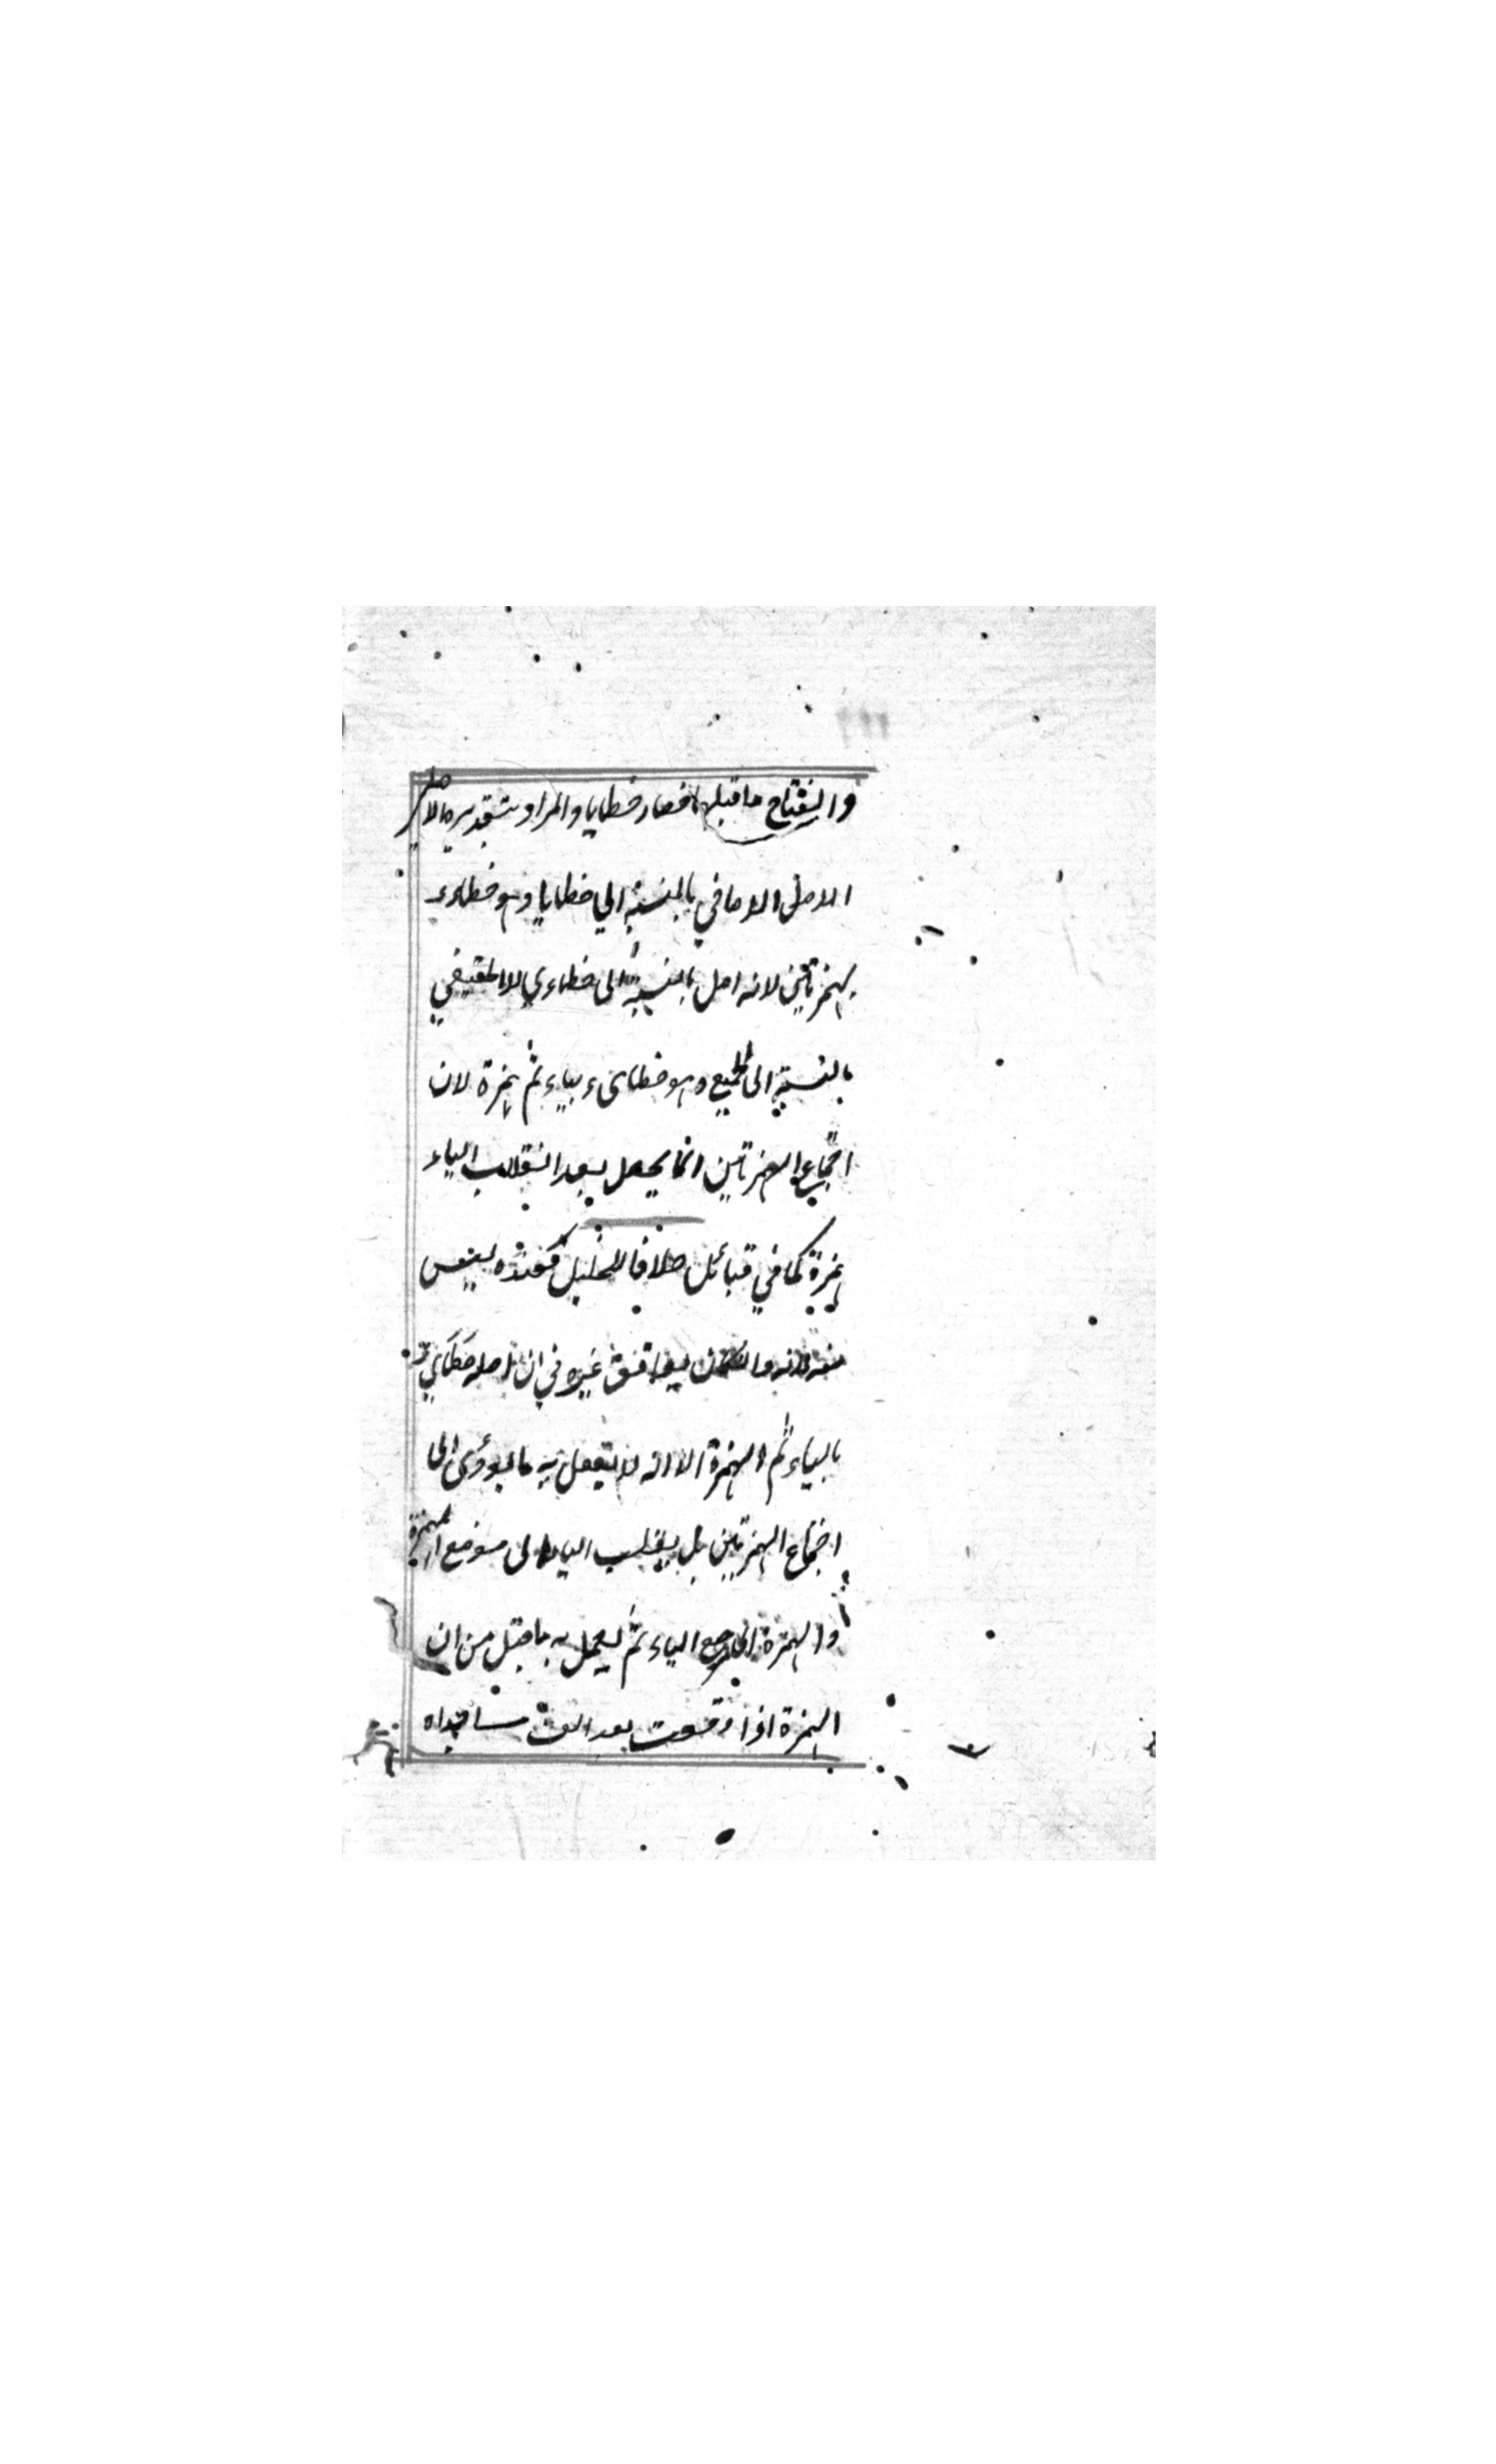 وانفتاح ما قبلها فصار خطايا والمراد بتقديره الاصلي
الاصل الاضافي بالنسبة الي خطايا وهو خطاءء
بهمزتين لانه اصل بالنسبة الى خطاءي لا الحقيقي
بالنسبة الى الجميع وهو خطايء بياء ثم همزة لان
اجتماع الهمزتين انما يحصل بعد انقلاب الياء
همزة كما في قبائل خلافا للخليل فعنده ليس
منه لانه وان كان يوافق غيره في ان اصله خطايء
بالياء ثم الهمزة الا انه لا يفعل به ما يؤدى الى
اجتماع الهمزتين بل يقلب الياء الى موضع الهمزة
والهمزة الى موضع الياء ثم يعمل به ما قيل من ان
الهمزة اذا وقعت بعد الف